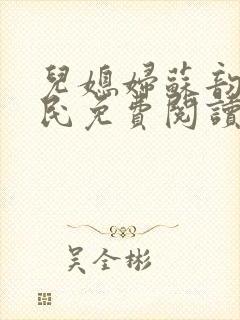 兒媳婦蘇韵
民免費閱讀
吴全彬